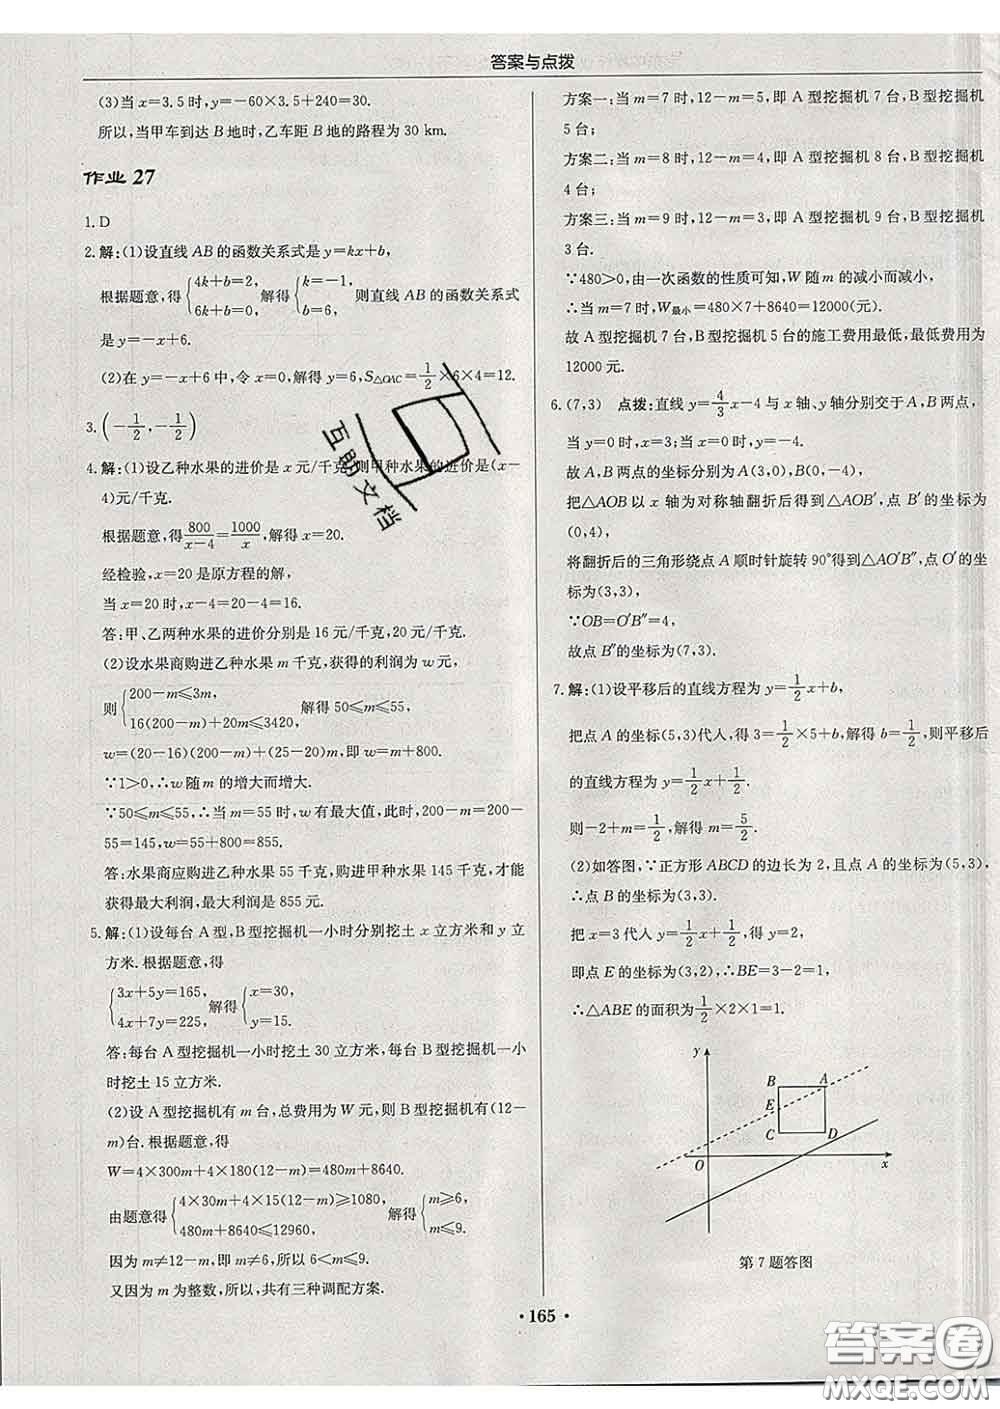 答案与点拨
(3)当 x=3.5 时,y=-60×3.5+240=30.
所以,当甲车到达 B 地时,乙车距 B 地的路程为 30 km.
作业 27
1. D
2. 解:(1)设直线 AB 的函数关系式是 y=kx+b,
根据题意,得{4k+b=2, 6k+b=0, 解得{k=-1, b=6, 则直线 AB 的函数关系式
是 y=-x+6.
(2)在 y=-x+6 中,令 x=0,解得 y=6,S△OAC=1/2×6×4=12.
3. (-1/2,-1/2)
4. 解:(1)设乙种水果的进价是 x 元/千克,则甲种水果的进价是(x-
4)元/千克.
根据题意,得800/(x-4)=1000/x,解得 x=20.
经检验,x=20 是原方程的解,
当 x=20 时,x-4=20-4=16.
答:甲、乙两种水果的进价分别是 16 元/千克,20 元/千克.
(2)设水果商购进乙种水果 m 千克,获得的利润为 w 元,
则{200-m≤3m, 16(200-m)+20m≤3420, 解得 50≤m≤55,
w=(20-16)(200-m)+(25-20)m,即 w=m+800.
∵1>0,∴w 随 m 的增大而增大.
∵50≤m≤55,∴当 m=55 时,w 有最大值,此时,200-m=200-
55=145,w=55+800=855.
答:水果商应购进乙种水果 55 千克,购进甲种水果 145 千克,才能
获得最大利润,最大利润是 855 元.
5. 解:(1)设每台 A 型,B 型挖掘机一小时分别挖土 x 立方米和 y 立
方米.根据题意,得
{3x+5y=165, 4x+7y=225, 解得{x=30, y=15.
答:每台 A 型挖掘机一小时挖土 30 立方米,每台 B 型挖掘机一小
时挖土 15 立方米.
(2)设 A 型挖掘机有 m 台,总费用为 W 元,则 B 型挖掘机有(12-
m)台.根据题意,得
W=4×300m+4×180(12-m)=480m+8640.
由题意得{4×30m+4×15(12-m)≥1080, 480m+8640≤12960, 解得{m≥6, m≤9.
因为 m≠12-m,即 m≠6,所以 6<m≤9.
又因为 m 为整数,所以,共有三种调配方案.
方案一:当 m=7 时,12-m=5,即 A 型挖掘机 7 台,B 型挖掘机
5 台;
方案二:当 m=8 时,12-m=4,即 A 型挖掘机 8 台,B 型挖掘机
4 台;
方案三:当 m=9 时,12-m=3,即 A 型挖掘机 9 台,B 型挖掘机
3 台.
∵480>0,由一次函数的性质可知,W 随 m 的减小而减小,
∴当 m=7 时,W最小=480×7+8640=12000(元).
故 A 型挖掘机 7 台,B 型挖掘机 5 台的施工费用最低,最低费用为
12000 元.
6. (7,3) 点拨:直线 y=4/3x-4 与 x 轴、y 轴分别交于 A,B 两点,
当 y=0 时,x=3;当 x=0 时,y=-4.
故 A,B 两点的坐标分别为 A(3,0),B(0,-4),
把△AOB 以 x 轴为对称轴翻折后得到△AOB′,点 B′的坐标为
(0,4),
将翻折后的三角形绕点 A 顺时针旋转 90°得到△AO′B″,点 O′的坐
标为(3,3),
∵OB=O′B″=4,
故点 B″的坐标为(7,3).
7. 解:(1)设平移后的直线方程为 y=1/2x+b,
把点 A 的坐标(5,3)代人,得 3=1/2×5+b,解得 b=1/2,则平移后
的直线方程为 y=1/2x+1/2.
则-2+m=1/2,解得 m=5/2.
(2)如答图,∵正方形 ABCD 的边长为 2,且点 A 的坐标为(5,3),
∴点 B 的坐标为(3,3).
把 x=3 代人 y=1/2x+1/2,得 y=2,
即点 E 的坐标为(3,2),∴BE=3-2=1,
∴△ABE 的面积为1/2×2×1=1.
y
B A
E
C D
O x
第 7 题答图
· 165 ·
互助文档
答案圈
MXQE.COM